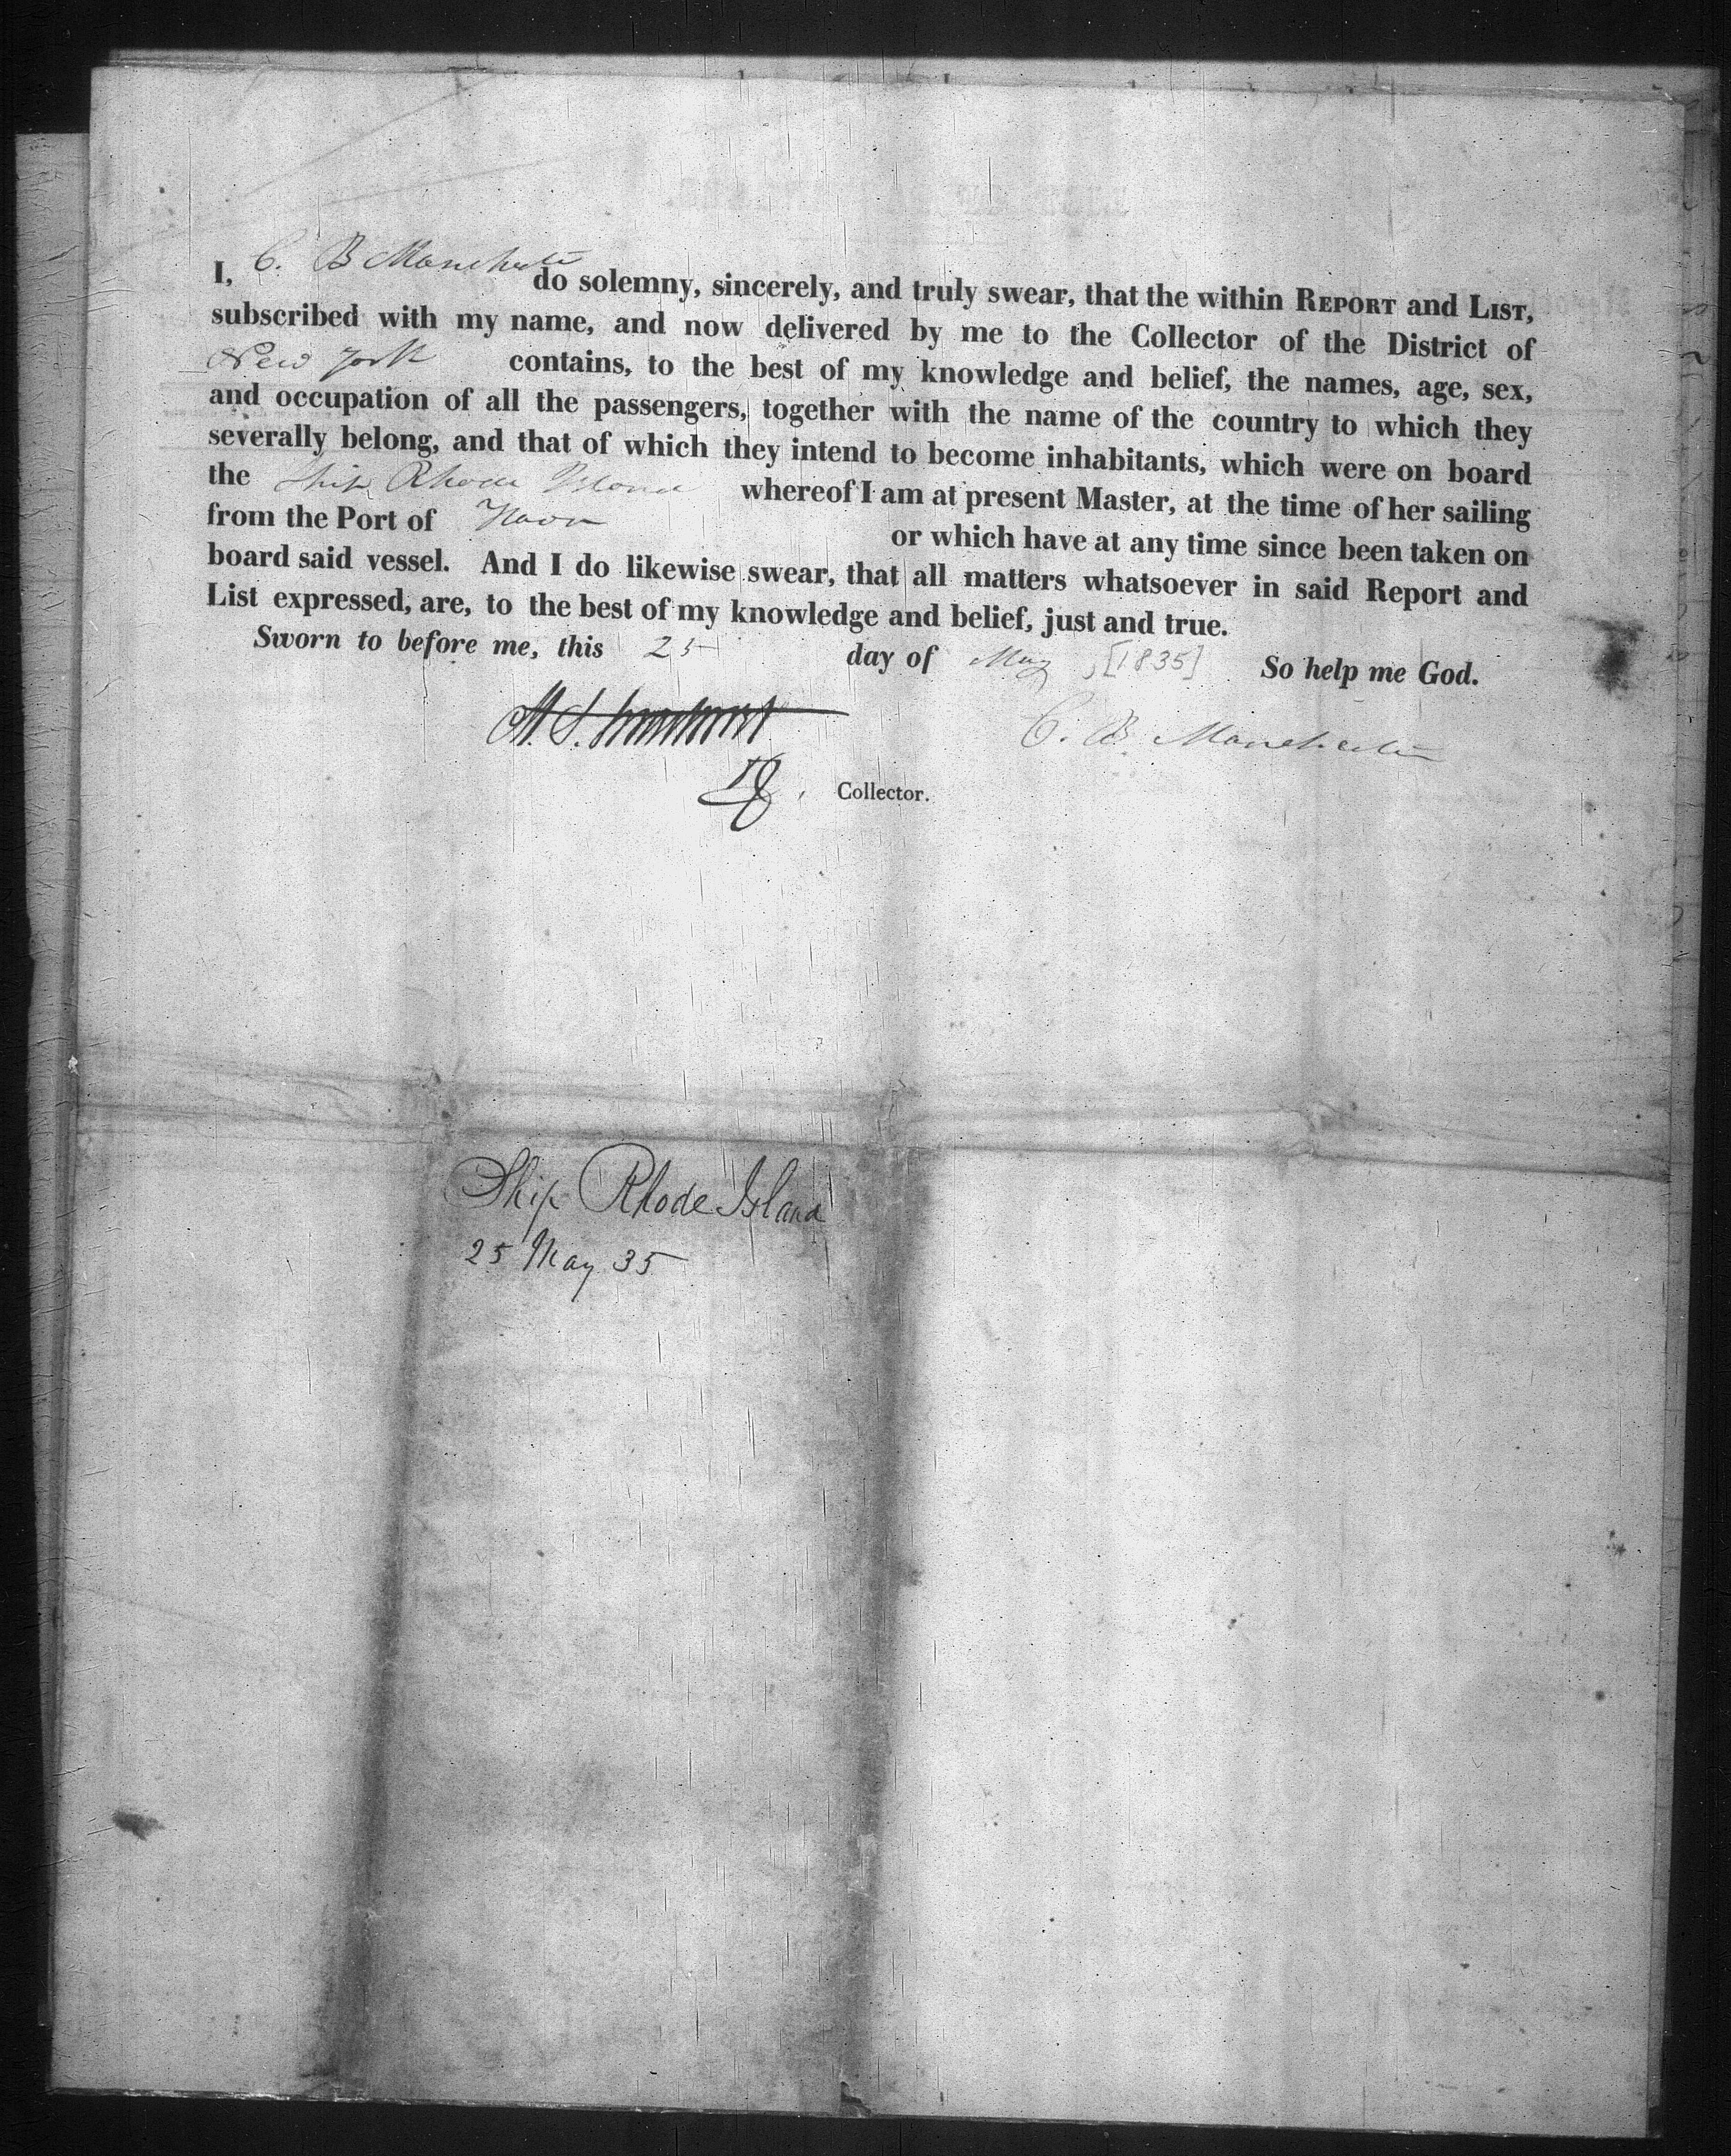 I, C. B Manchester do solemny, sincerely, and truly swear, that the within REPORT and LIST,
subscribed with my name, and now delivered by me to the Collector of the District of
New York contains, to the best of my knowledge and belief, the names, age, sex,
and occupation of all the passengers, together with the name of the country to which they
severally belong, and that of which they intend to become inhabitants, which were on board
the Ship Rhode Island whereof I am at present Master, at the time of her sailing
from the Port of Havre or which have at any time since been taken on
board said vessel. And I do likewise swear, that all matters whatsoever in said Report and
List expressed, are, to the best of my knowledge and belief, just and true.
Sworn to before me, this 25 day of May, [1835] So help me God.
C. B. Manchester
Collector.
Ship Rhode Island
25 May 35